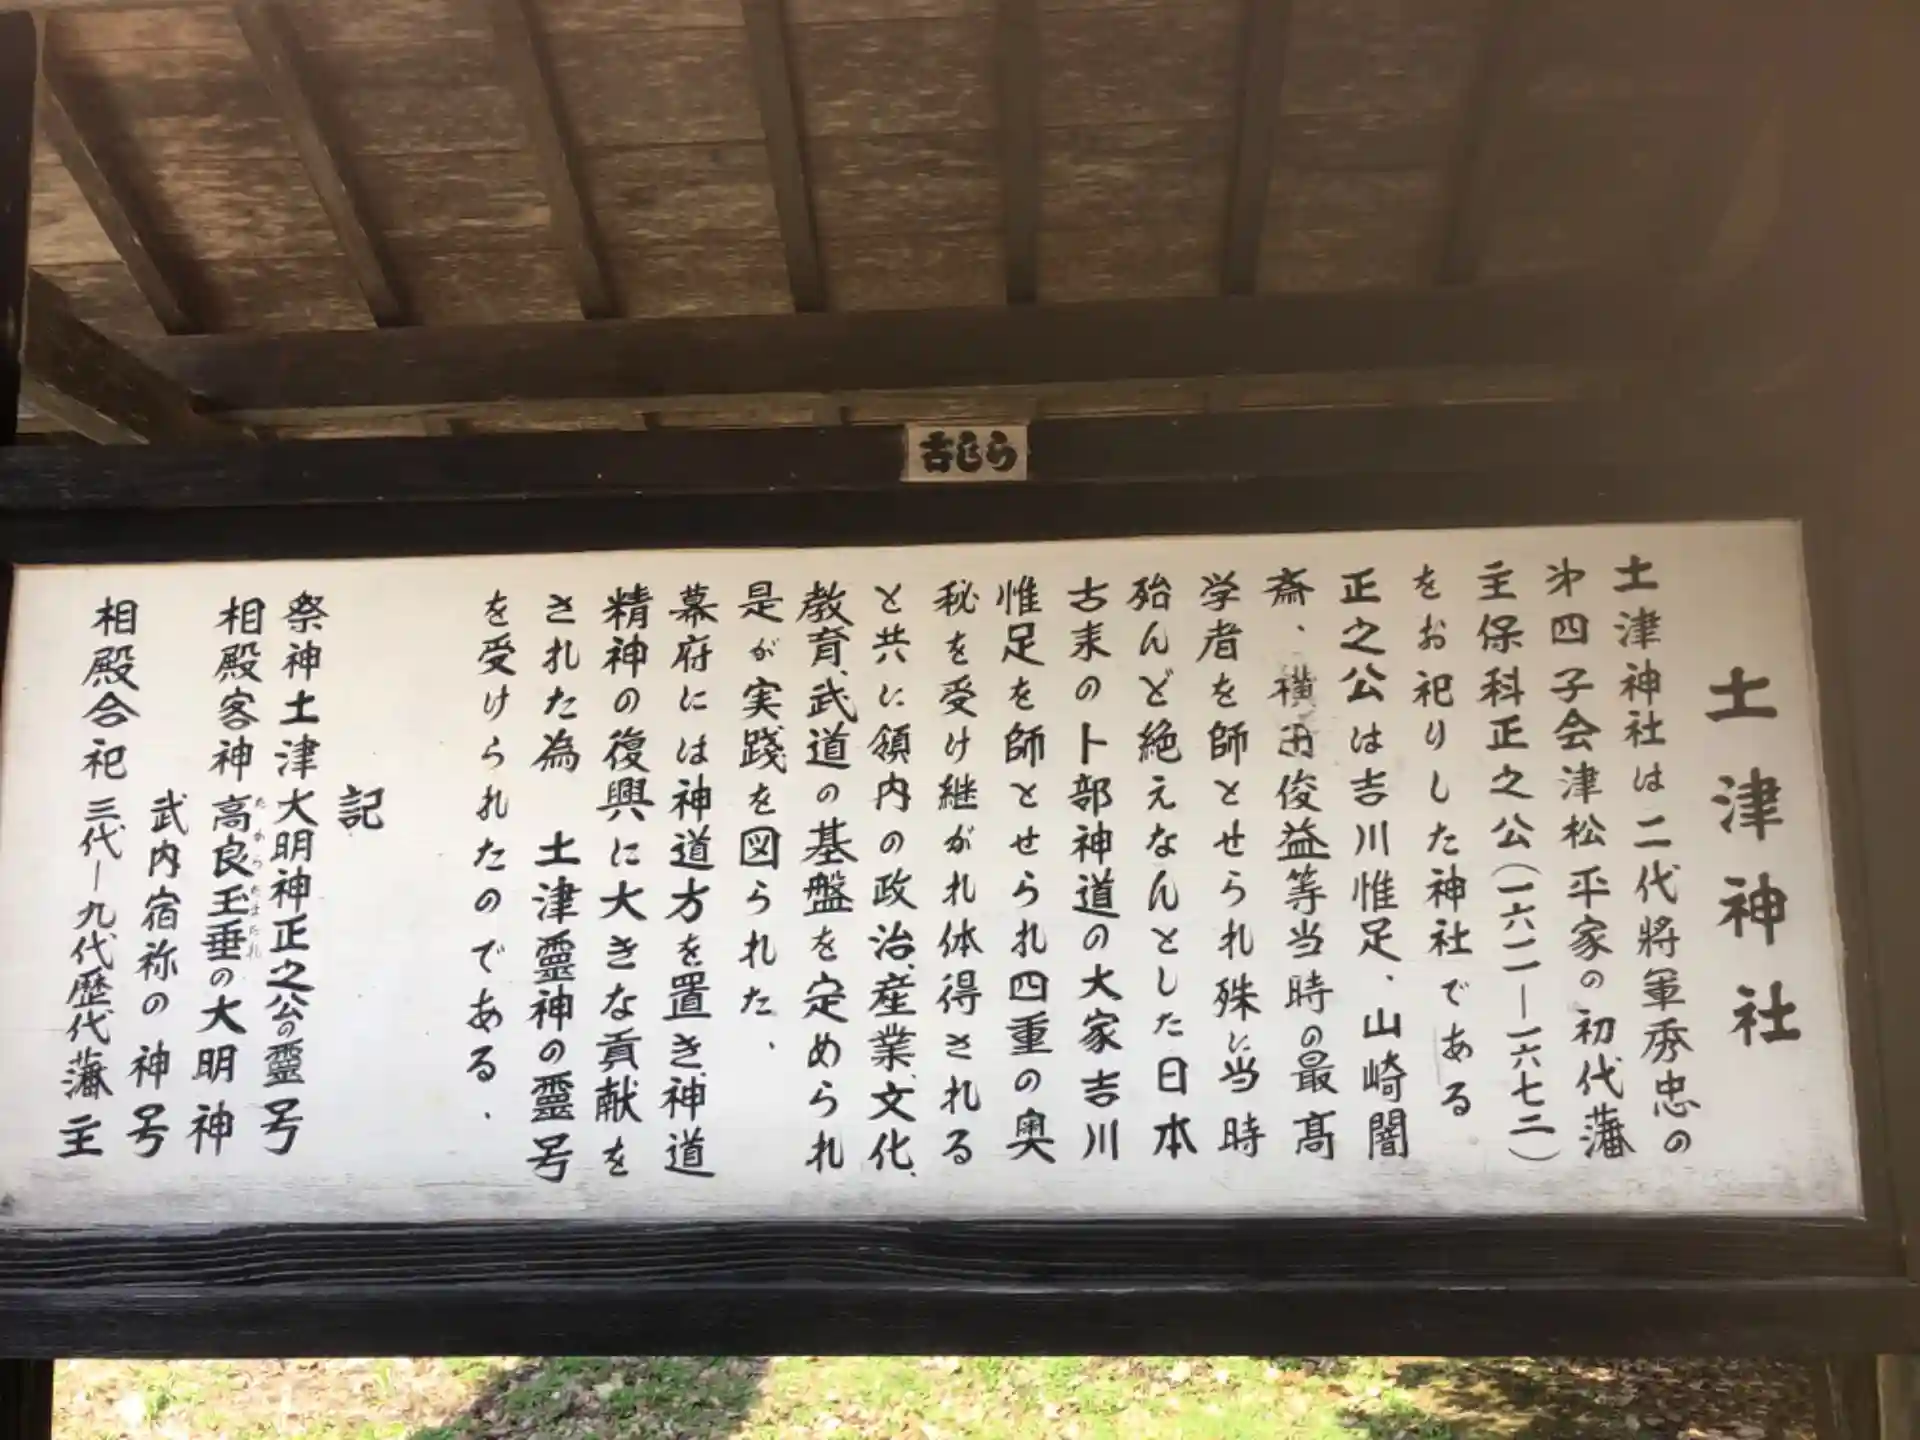 古峯ら
土津神社
土津神社は二代将軍秀忠の
㐧四子会津松平家の初代藩
主保科正之公(一六一一―一六七二)
をお祀りした神社である
正之公は吉川惟足、山崎闇
斎、横田俊益等当時の最高
学者を師とせられ殊に当時
殆んど絶えなんとした日本
古来の卜部神道の大家吉川
惟足を師とせられ四重の奥
秘を受け継がれ体得される
と共に領内の政治、産業、文化、
教育、武道の基盤を定められ
是が実践を図られた、
幕府には神道方を置き、神道
精神の復興に大きな貢献を
された為 土津靈神の靈号
を受けられたのである.
記
祭神土津大明神正之公の靈号
相殿客神高良玉垂の大明神
たからたまたれ
武内宿祢の神号
相殿合祀三代―九代歴代藩主